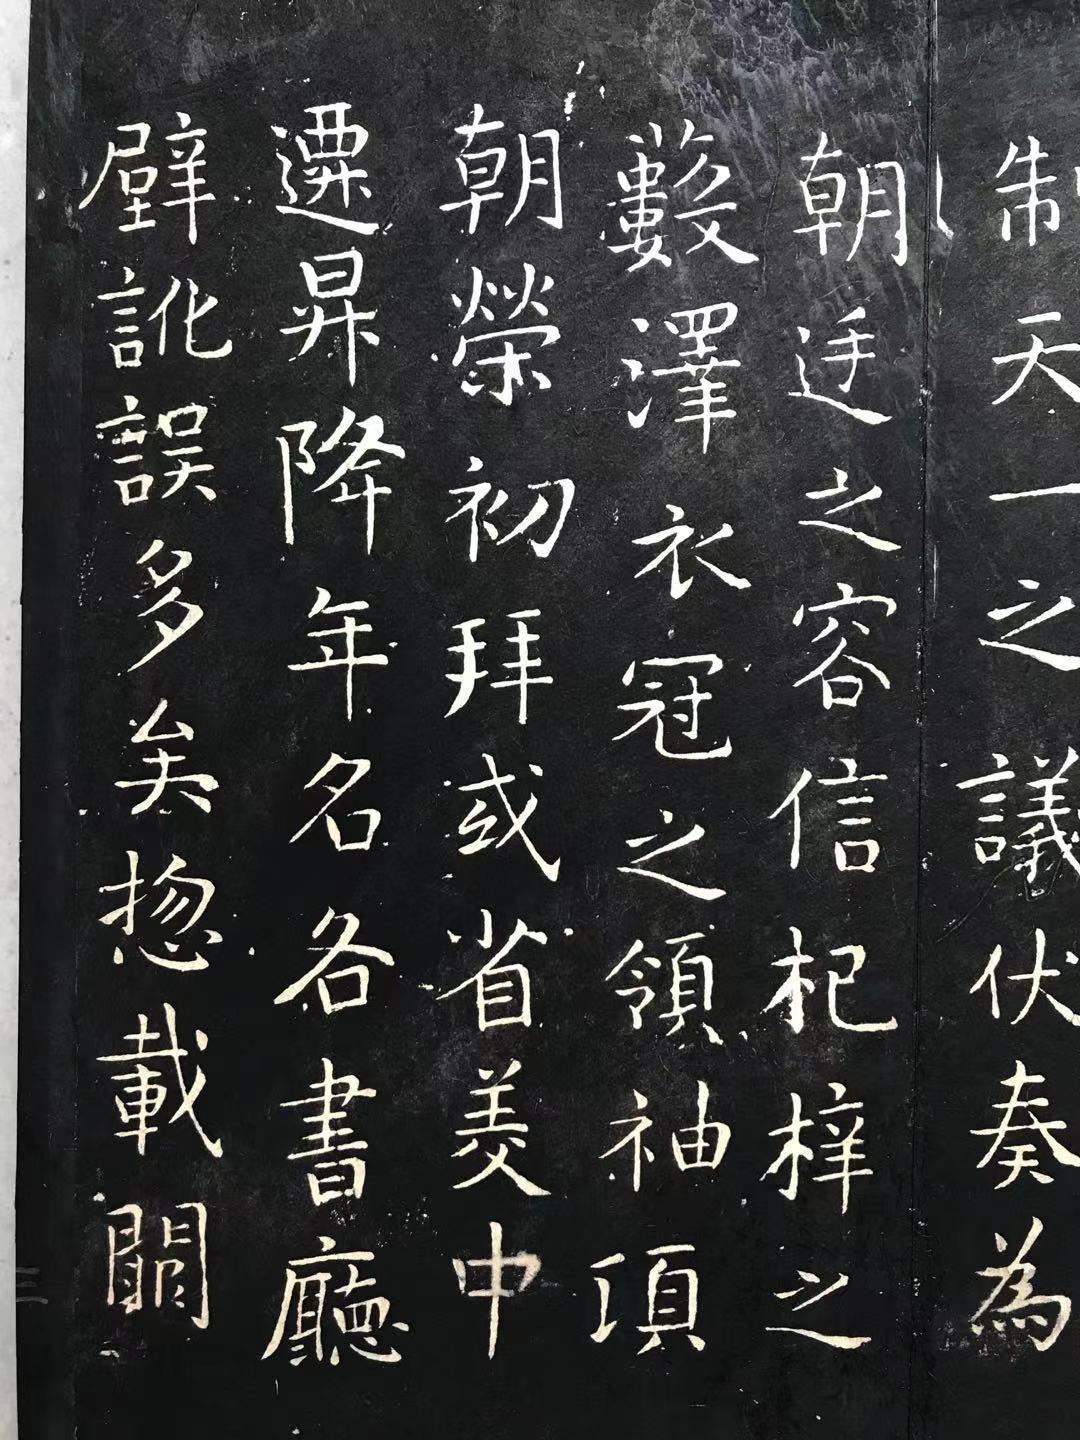 制天一之議伏奏為
朝廷之容信杞梓之
藪澤衣冠之領袖頃
朝榮初拜或省美中
遷昇降年名各書廳
壁訛誤多矣揔載闕
三